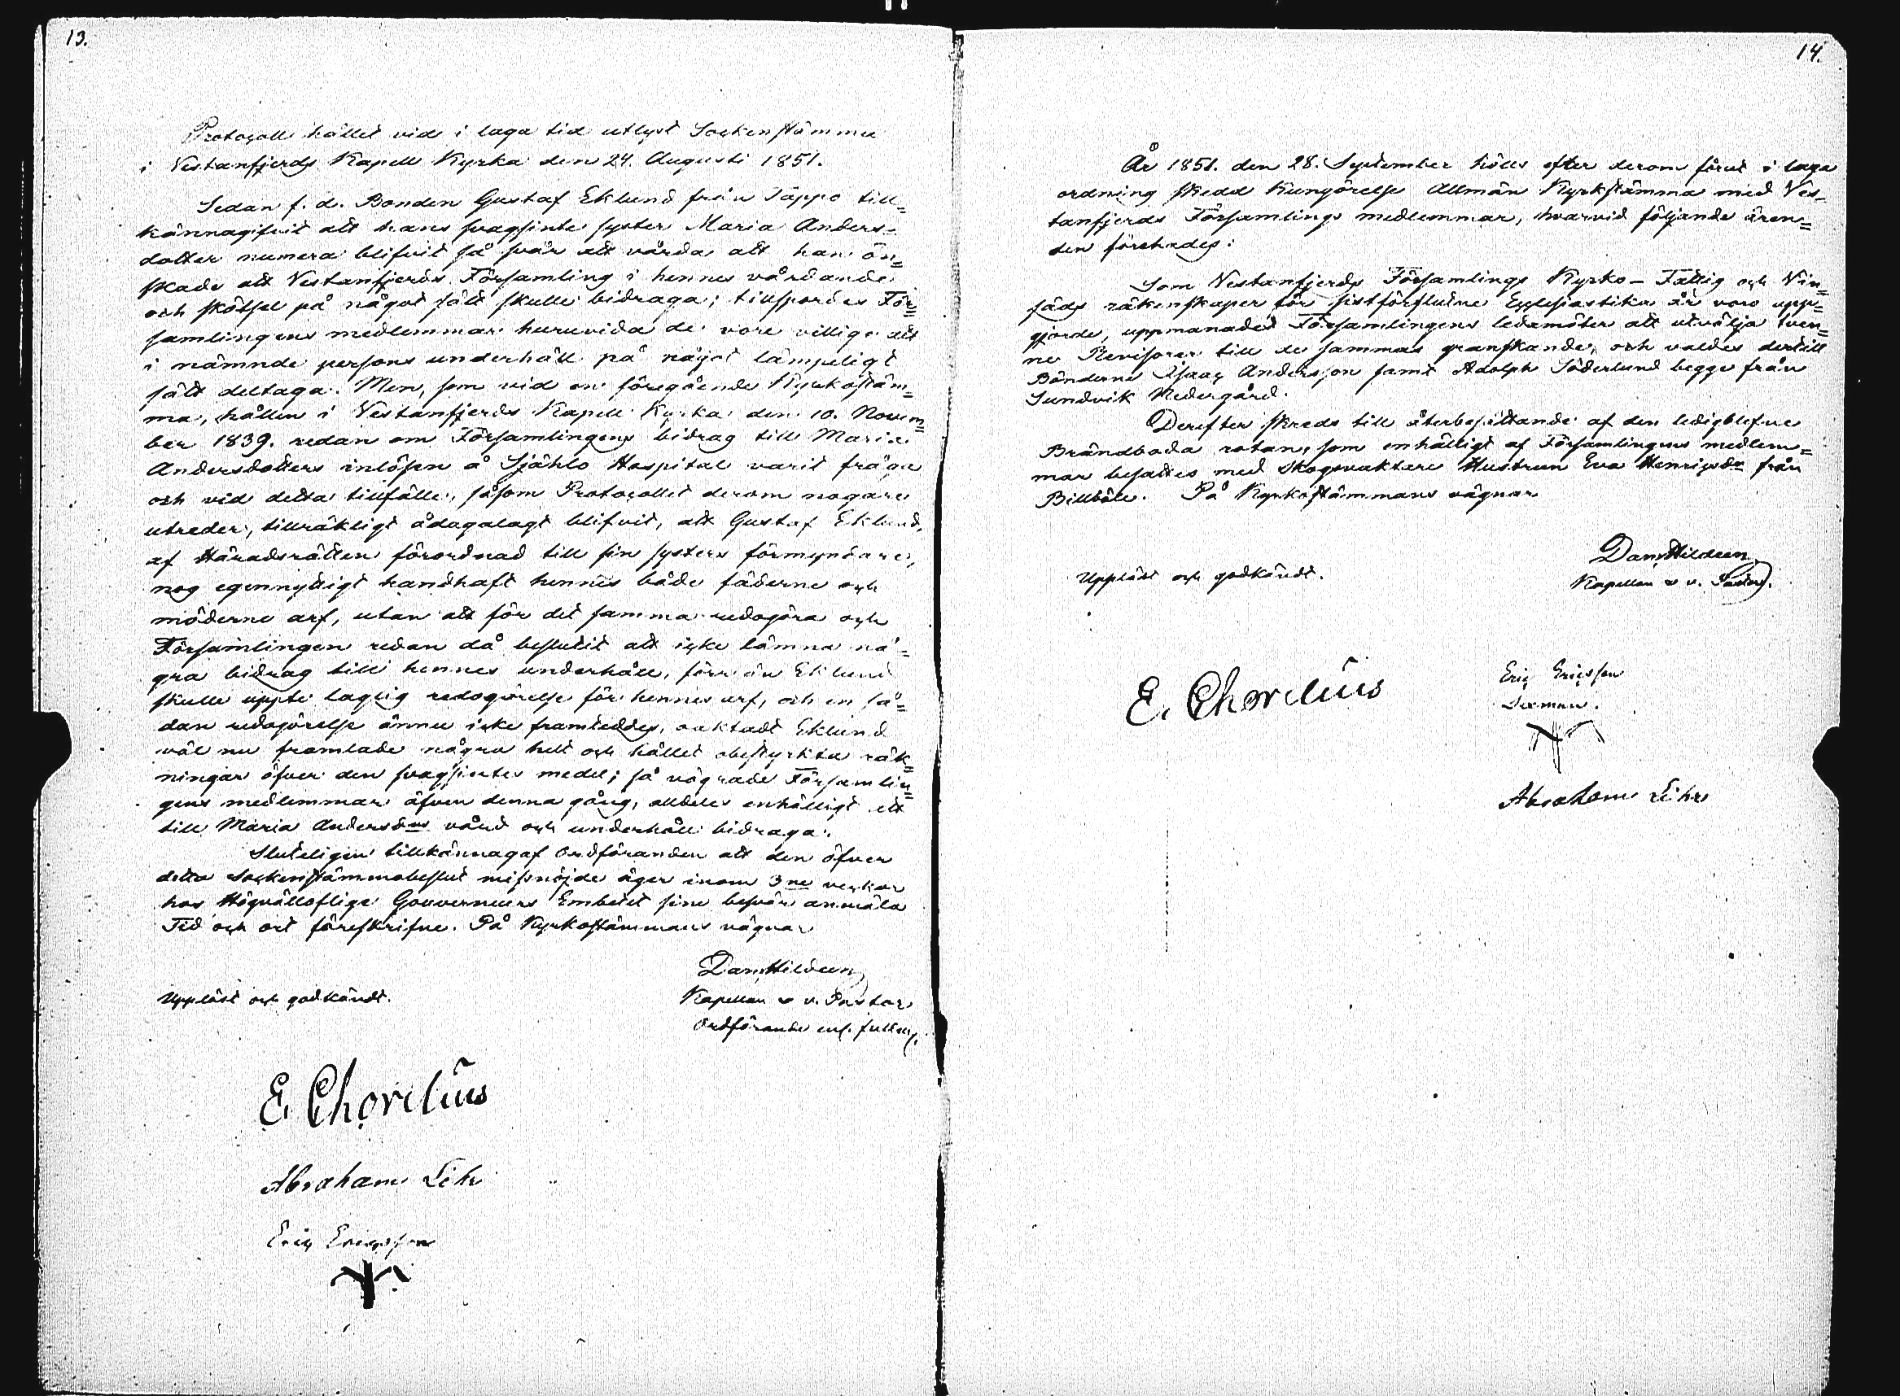 13.
Protocoll hållet vid i laga tid utlyst Sockenstämma
i Vestanfjerds Kapell Kyrka den 24. Augusti 1851.
Sedan f. d. Bonden Gustaf Eklund från Täppo till=
kännagifvit att hans svagsinte syster Maria Anders=
dotter numera blifvit så svår att vårda att han ön=
skade att Vestanfjerds Församling i hennes vårdande
och skötsel på något sätt skulle bidraga; tillspordes För=
samlingens medlemmar huruvida de vore villige att
i nämnde persons underhåll på något lämpeligt
sätt deltaga. Men, som vid en föregående Kyrkostäm=
ma, hållen i Vestanfjerds Kapell Kyrka den 10. Novem=
ber 1839. redan om Församlingens bidrag till Maria
Andersdotters inlösen å Sjählo Hospital varit fråga
och vid detta tillfälle, såsom Protocollet derom nogare
utreder, tillräkligt ådagalagt blifvit, att Gustaf Eklund,
af Häradsrätten förordnad till sin systers förmyndare,
nog egennyttigt handhaft hennes både fäderne och
möderne arf, utan att för det samma redogöra och
Församlingen redan då beslutit att icke lämna nå=
gra bidrag till hennes underhåll, förr än Eklund
skulle uppte laglig redogörelse för hennes arf, och en så=
dan redogörelse ännu icke framteddes, oaktadt Eklund
väl nu framlade några helt och hållet obestyrkta räk=
ningar öfver den svagsintes medel; så vägrade Församlin=
gens medlemmar äfven denna gång, alldeles enhälligt att
till Maria Andersdrs vård och underhåll bidraga.
Sluteligen tillkännagaf Ordföranden att den öfver
detta Sockenstämmobeslut missnöjde äger inom 3ne veckor
hos Högvällofliga Gouverneurs Embetet sine besvär anmäla
Tid och ort föreskrifne. På Kyrkostämmans vägnar
Dan Hildeen
Uppläst och godkändt. Kapellan v. Pastor
Ordförande
E. Chorelius
Abraham Lihr
Eric Ericsson
14.
År 1851. den 28. September hölls efter derom förut i laga
ordning skedd Kungörelse Allmän Kyrkstämma med Ves=
tanfjerds Församlings medlemmar, hvarvid följande ären=
den förehades:
Som Vestanfjerds Församlings Kyrko- Fattig och Vin=
säds räkenskaper för sistförflutne Ecclesiastika år voro upp=
gjorde, uppmanades Församlingens ledamöter att utvälja tven=
ne Revisorer till de sammas granskande, och valdes dertill
Bönderne Isaac Andersson samt Adolph Söderlund begge från
Sundvik Nedergård.
Derefter skreds till återbesättande af den ledigblefne
Brändboda rotan, som enhälligt af Församlingens medlem=
mar besattes med Skogsvaktare Hustrun Eva Henricsdr från
Billböle. På Kyrkostämmans vägnar
Dan Hildeen
Uppläst och godkändt. Kapellan v. v. Pastor.
E. Chorelius
Eric Ericsson
Sexman.
Abraham Lihr